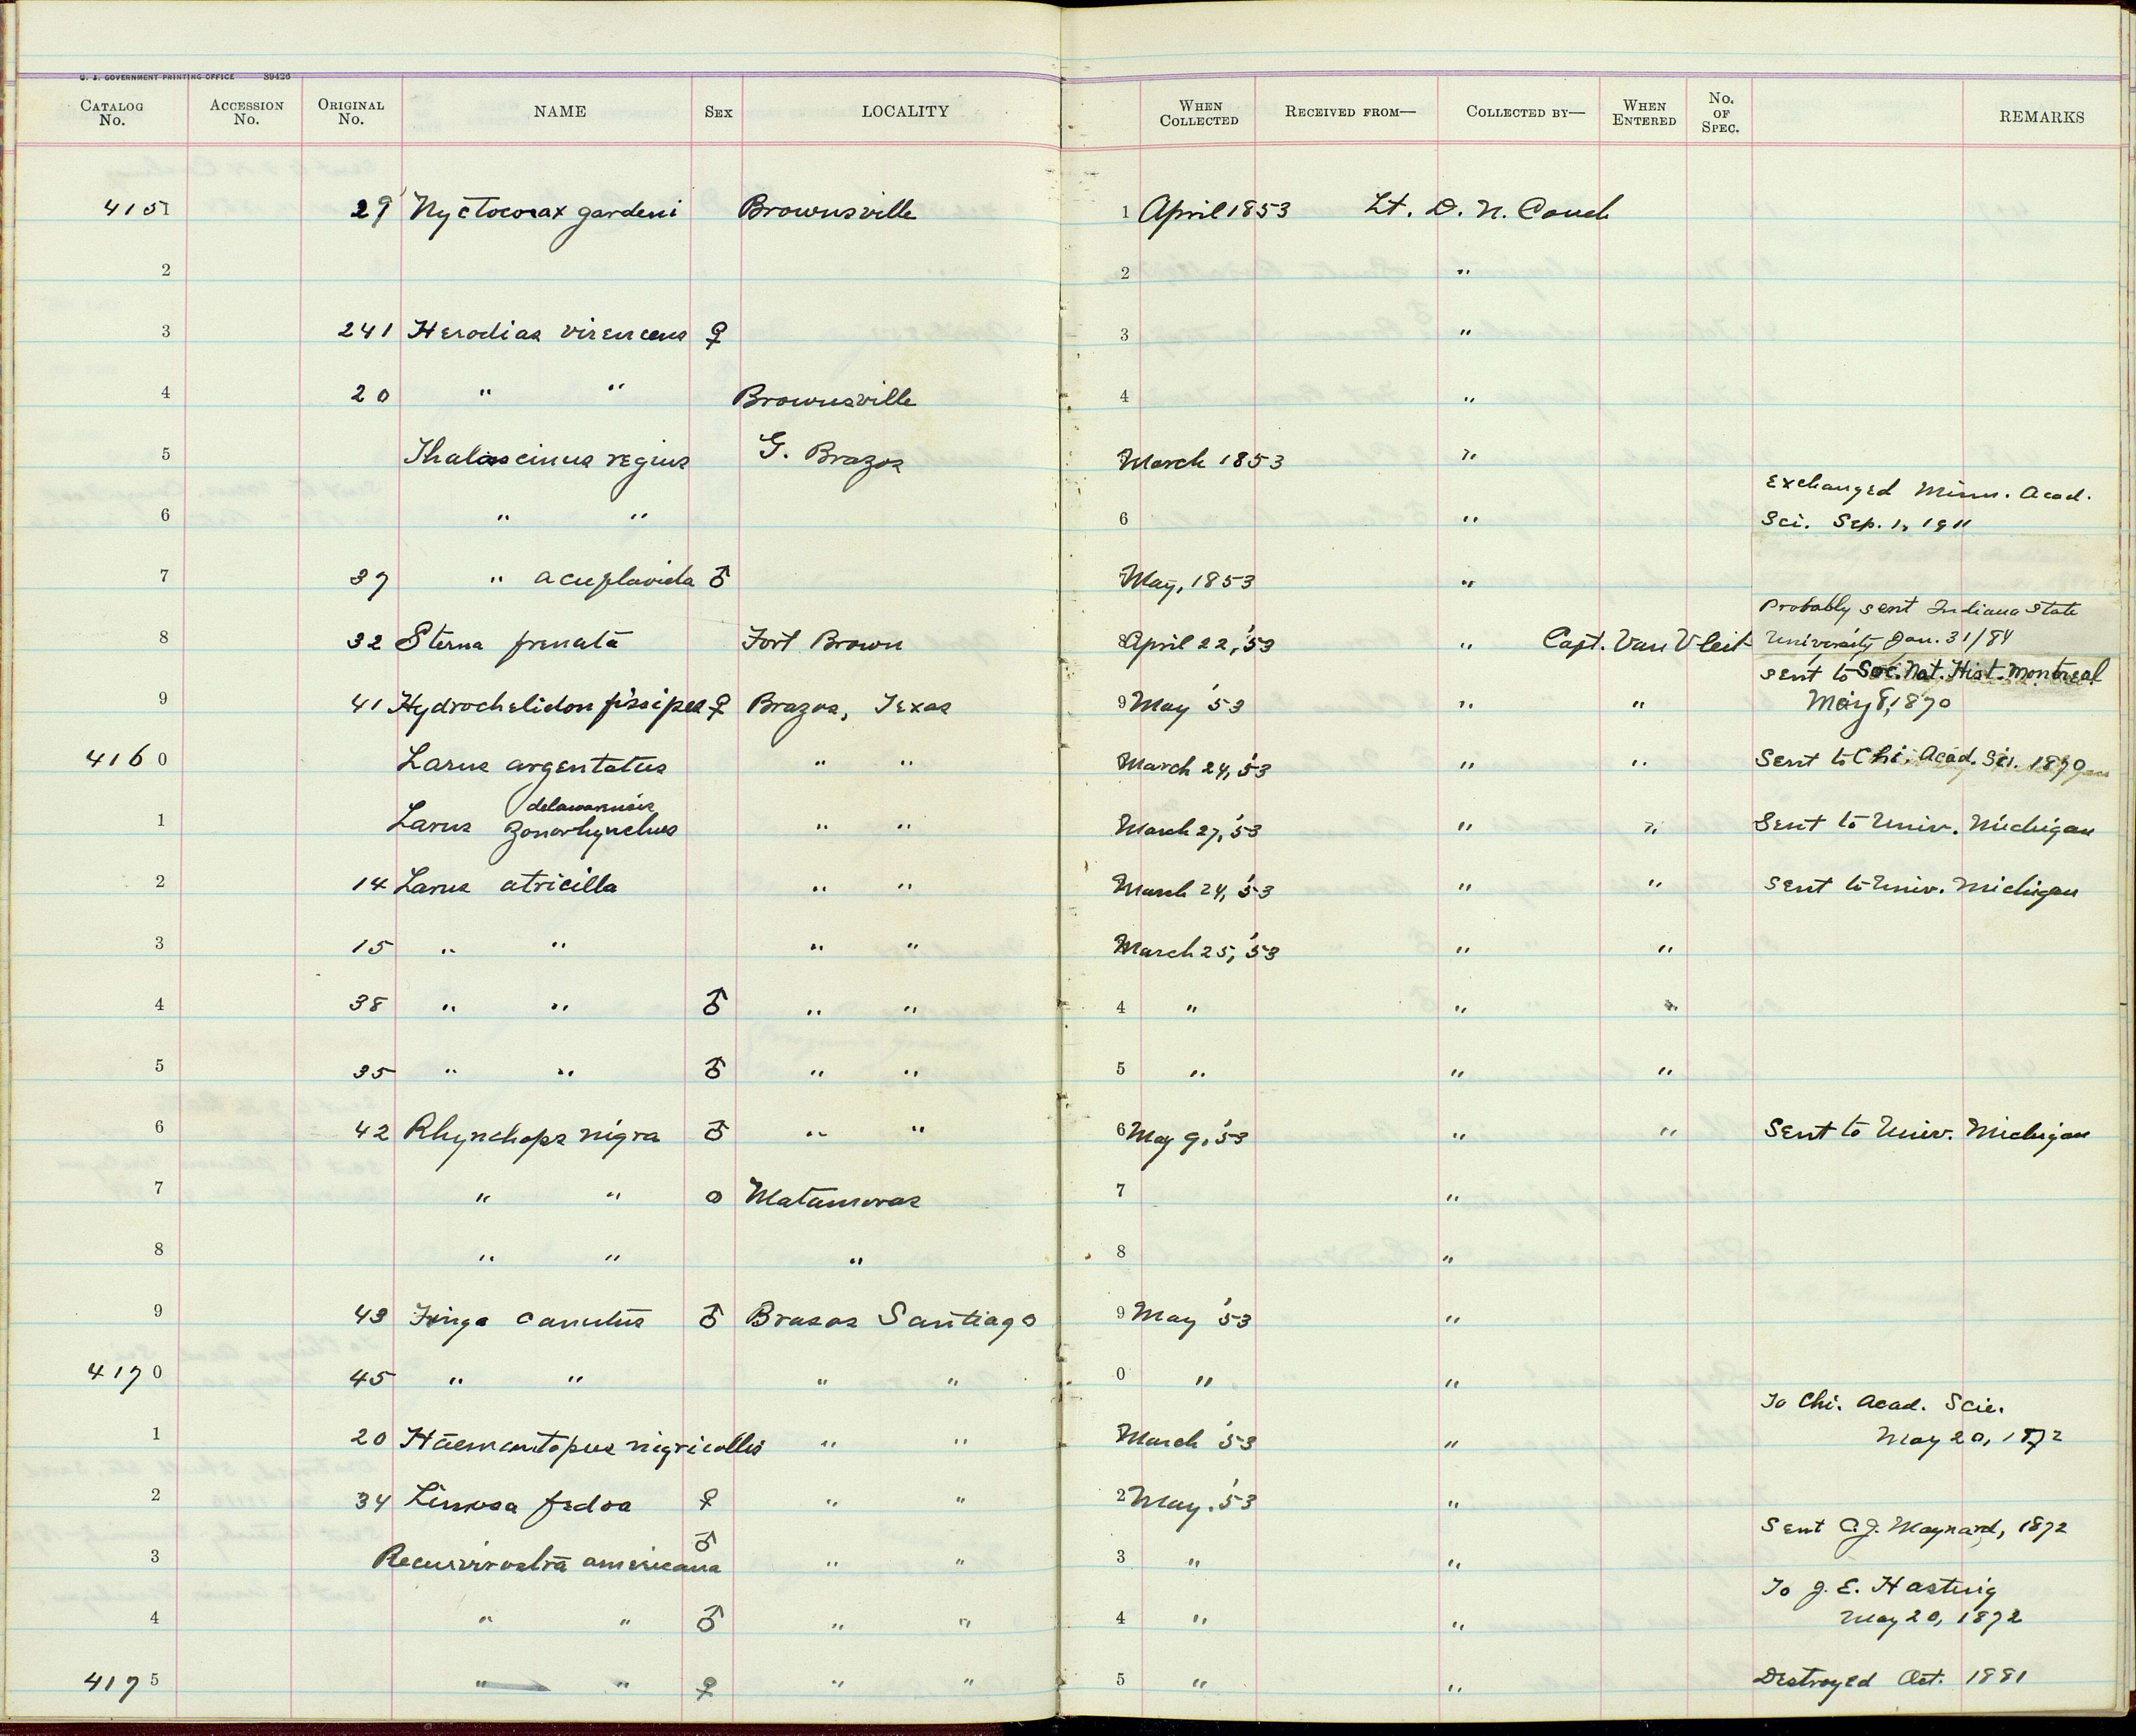 U. S. GOVERNMENT PRINTING OFFICE 39426
CATALOG No. ACCESSION No. ORIGINAL No. NAME SEX LOCALITY WHEN COLLECTED RECEIVED FROM— COLLECTED BY— WHEN ENTERED No. OF SPEC. REMARKS
4151 29 Nyctocorax gardeni Brownsville 1 April 1853 Lt. D. N. Couch
2 2 "
3 241 Herodias virescens ♀ 3 "
4 20 " " Brownsville 4 "
5 Thalasseinus regius G. Brazos March 1853 "
6 " " 6 " Exchanged Minn. Acad. Sci. Sep. 1, 1911
7 37 " acuflavida ♂ May, 1853 "
8 32 Sterna frenata Fort Brown 8 April 22, '53 " Capt. Van Vleit Probably sent Indiana State University Jan. 31/84
9 41 Hydrochelidon fissipes ♀ Brazos, Texas 9 May '53 " " Sent to Soc. Nat. Hist. Montreal May 8, 1870
4160 Larus argentatus " " March 24, '53 " " Sent to Chi. Acad. Sci. 1870
delawarensis
1 Larus zonorhynchus " " March 27, '53 " " Sent to Univ. Michigan
2 14 Larus atricilla " " March 24, '53 " " Sent to Univ. Michigan
3 15 " " " " March 25, '53 " "
4 38 " " ♂ " " 4 " " "
5 35 " " ♂ " " 5 " " "
6 42 Rhynchops nigra ♂ " " 6 May 9, '53 " " Sent to Univ. Michigan
7 " " o Matamoras 7 "
8 " " " 8 "
9 43 Tringa canutus ♂ Brasos Santiago 9 May '53 "
4170 45 " " " " 0 " "
1 20 Haemantopus nigricollis " " March '53 " To Chi. Acad. Scie. May 20, 1872
2 34 Limosa fedoa ♀ " " 2 May. '53 "
3 Recurvirostra americana ♂ " " 3 " " Sent C. J. Maynard, 1872
4 " " ♂ " " 4 " " To J. E. Hasting May 20, 1872
4175 " " ♀ " " 5 " " Destroyed Oct. 1881